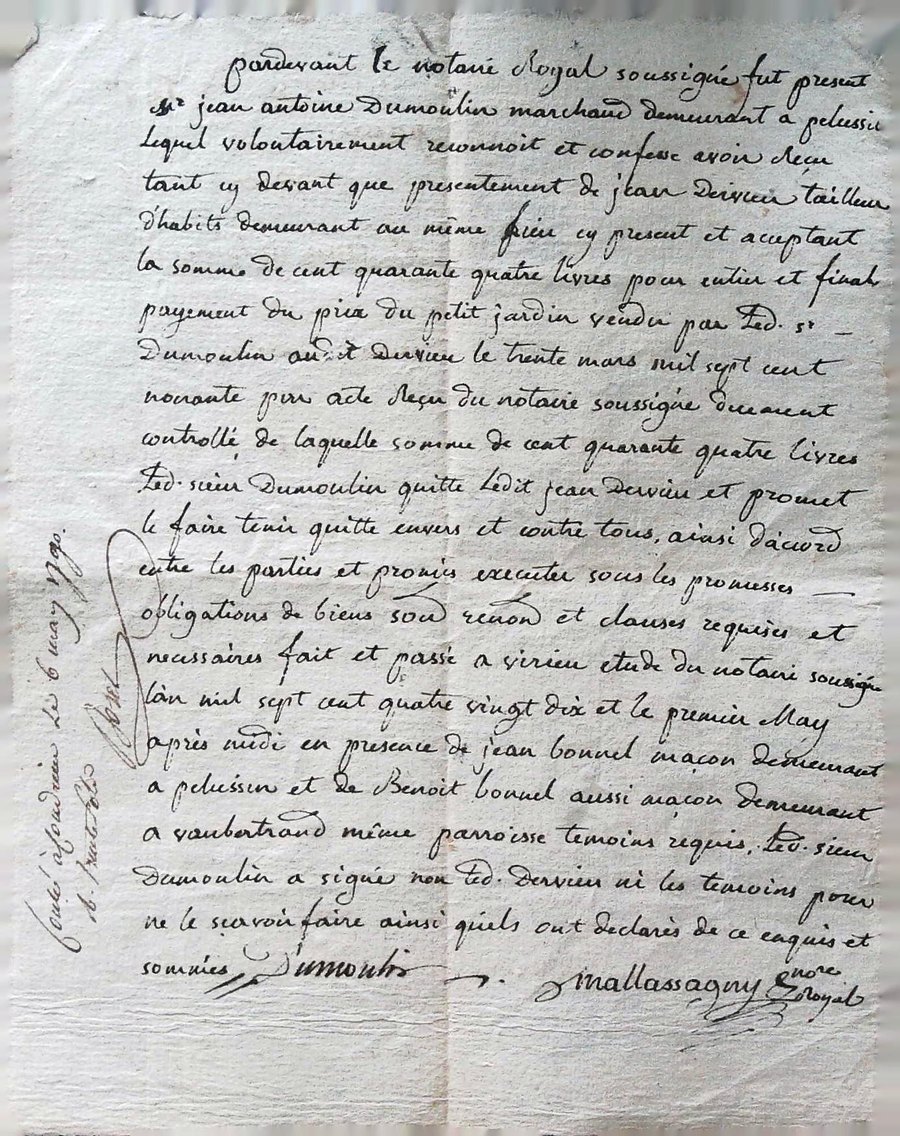 pardevant le notaire Royal soussigné fut present
Sr jean antoine Dumoulin marchand demeurant a pelussin
Lequel volontairement reconnoit et confesse avoir Reçu
tant cy devant que presentement de jean Dervieu tailleur
d'habits demeurant au même lieu cy present et acceptant
la somme de cent quarante quatre livres pour entier et final
payement du prix du petit jardin vendu par Led. sr
Dumoulin audit Dervieu le trente mars mil sept cent
nonante par acte Reçu du notaire soussigné duement
controllé, de laquelle somme de cent quarante quatre livres
Led. sieur Dumoulin quitte Ledit jean Dervieu et promet
le faire tenir quitte envers et contre tous, ainsi d'acord
entre les parties et promis executer sous les promesses
obligations de biens soud renond et clauses requises et
necessaires fait et passé a virieu etude du notaire soussigné
l'an mil sept cent quatre vingt dix et le premier May
après midi en presence de jean bonnel maçon demeurant
a pelussin et de Benoit bonnel aussi maçon demeurant
a vaubertrand même parroisse temoins requis, Led. sieur
Dumoulin a signé non Led. Dervieu ni les temoins pour
ne le scavoir faire ainsi qu'els ont declarés de ce enquis et
sommés, Dumoulin
Mallassagny nore
royal
Conlé à Condrieu Le 6 may 1790.